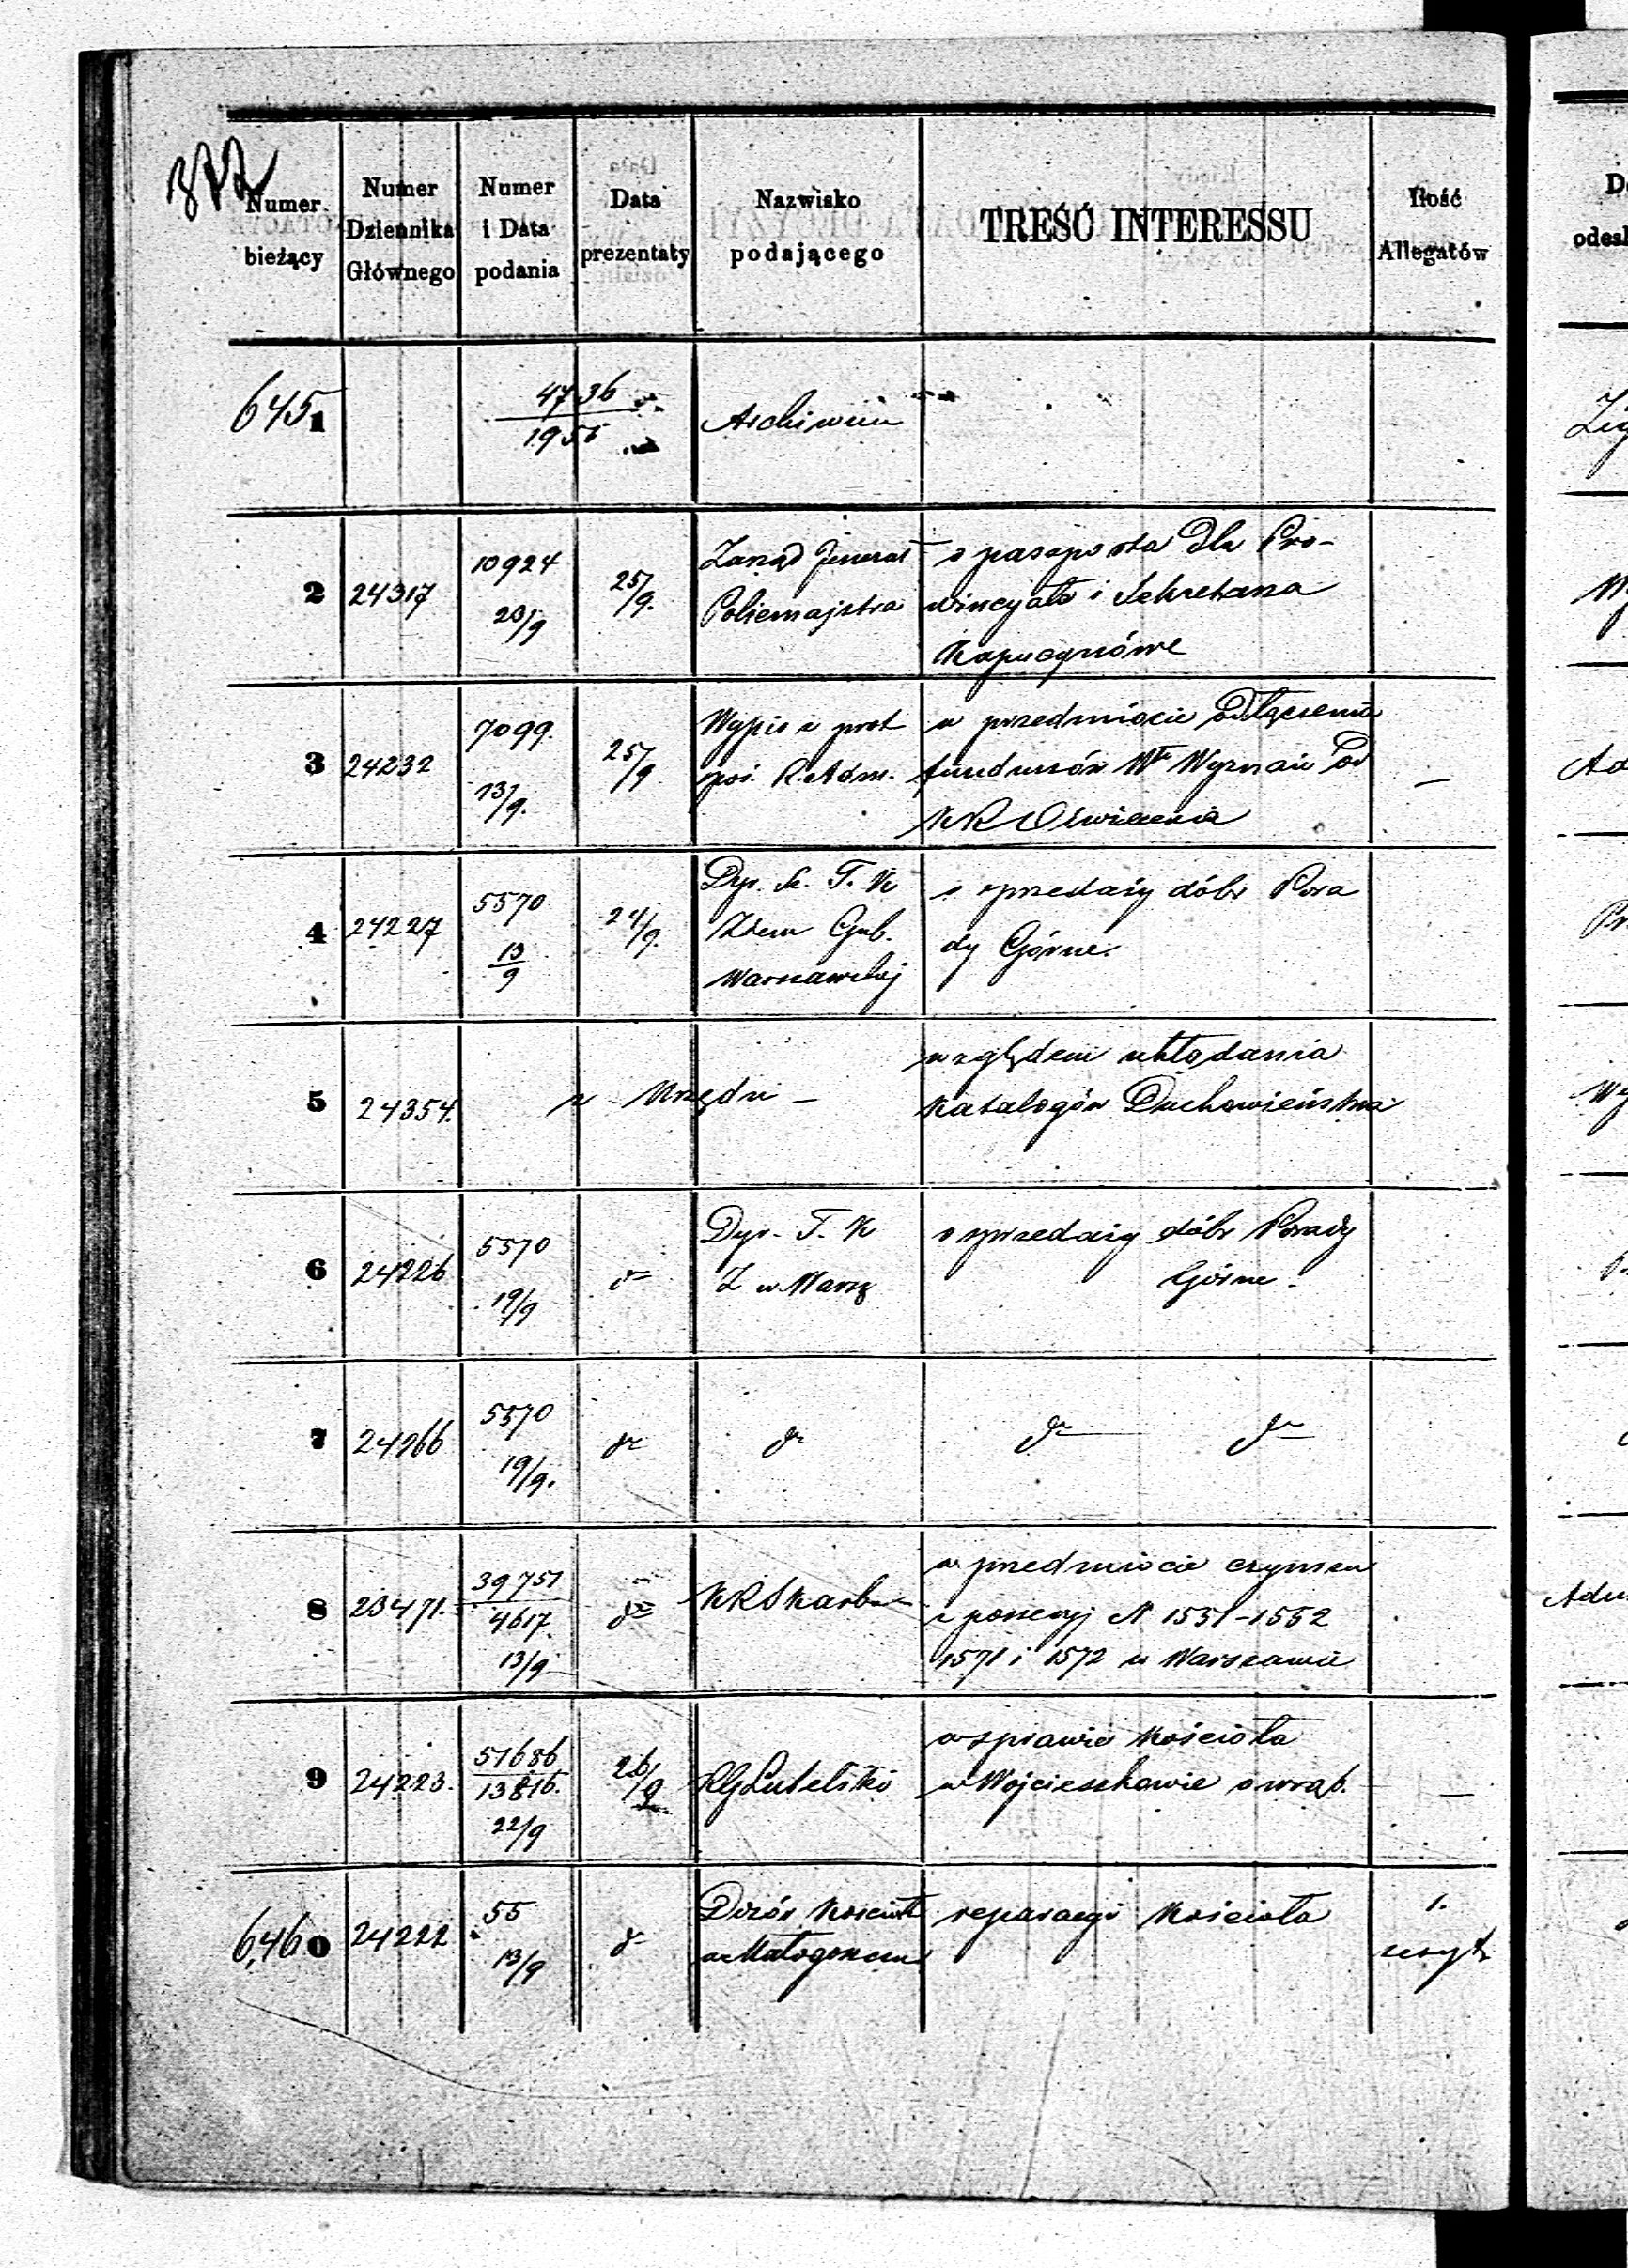 377
Numer bieżący
Numer Dziennika Głównego
Numer i Data podania
Data prezentaty
Nazwisko podającego
TREŚĆ INTERESSU
Ilość Allegatów
6451
4736
1955
Archiwum
2 24317
10924
20/9
25/9.
Zarząd Jenerał
Policmajstra
o paszporta dla Pro-
wincyała i Sekretarza
Kapucynów
3 24232
7099.
13/9.
25/9
Wypis z prot
pos. R. Adm.
w przedmiocie odłączenia
funduszów Wn Wyznań od
KR Oświecenia
4 24227
5570
13/9
24/9.
Dyr. Sz. T. K
Ziem Gub.
Warszawskiej
o sprzedaży dóbr Pora
dy Górne.
5 24354.
z Urzędu –
względem układania
Katalogów Duchowieństwa
6 24226
5570
19/9
dto
Dyr. T. K
Z w Warsz
o sprzedaży dóbr Porady
Górne –
7 24266
5570
19/9.
dto
dto
dto dto
8 23471.
39751
4617.
13/9
dto
KRSkarbu
w przedmiocie czynszu
z possesyj N 1551-1552
1571 i 1572 w Warszawie
9 24223.
51686
13816.
22/9
26/9
RGLubelski
w sprawie Kościoła
w Wojcieszkowie
—
6,460 24222
55
13/9
dto
Dozór Kościoła
w Małogoszczu
reparacyi Kościoła
1.
zeszyt